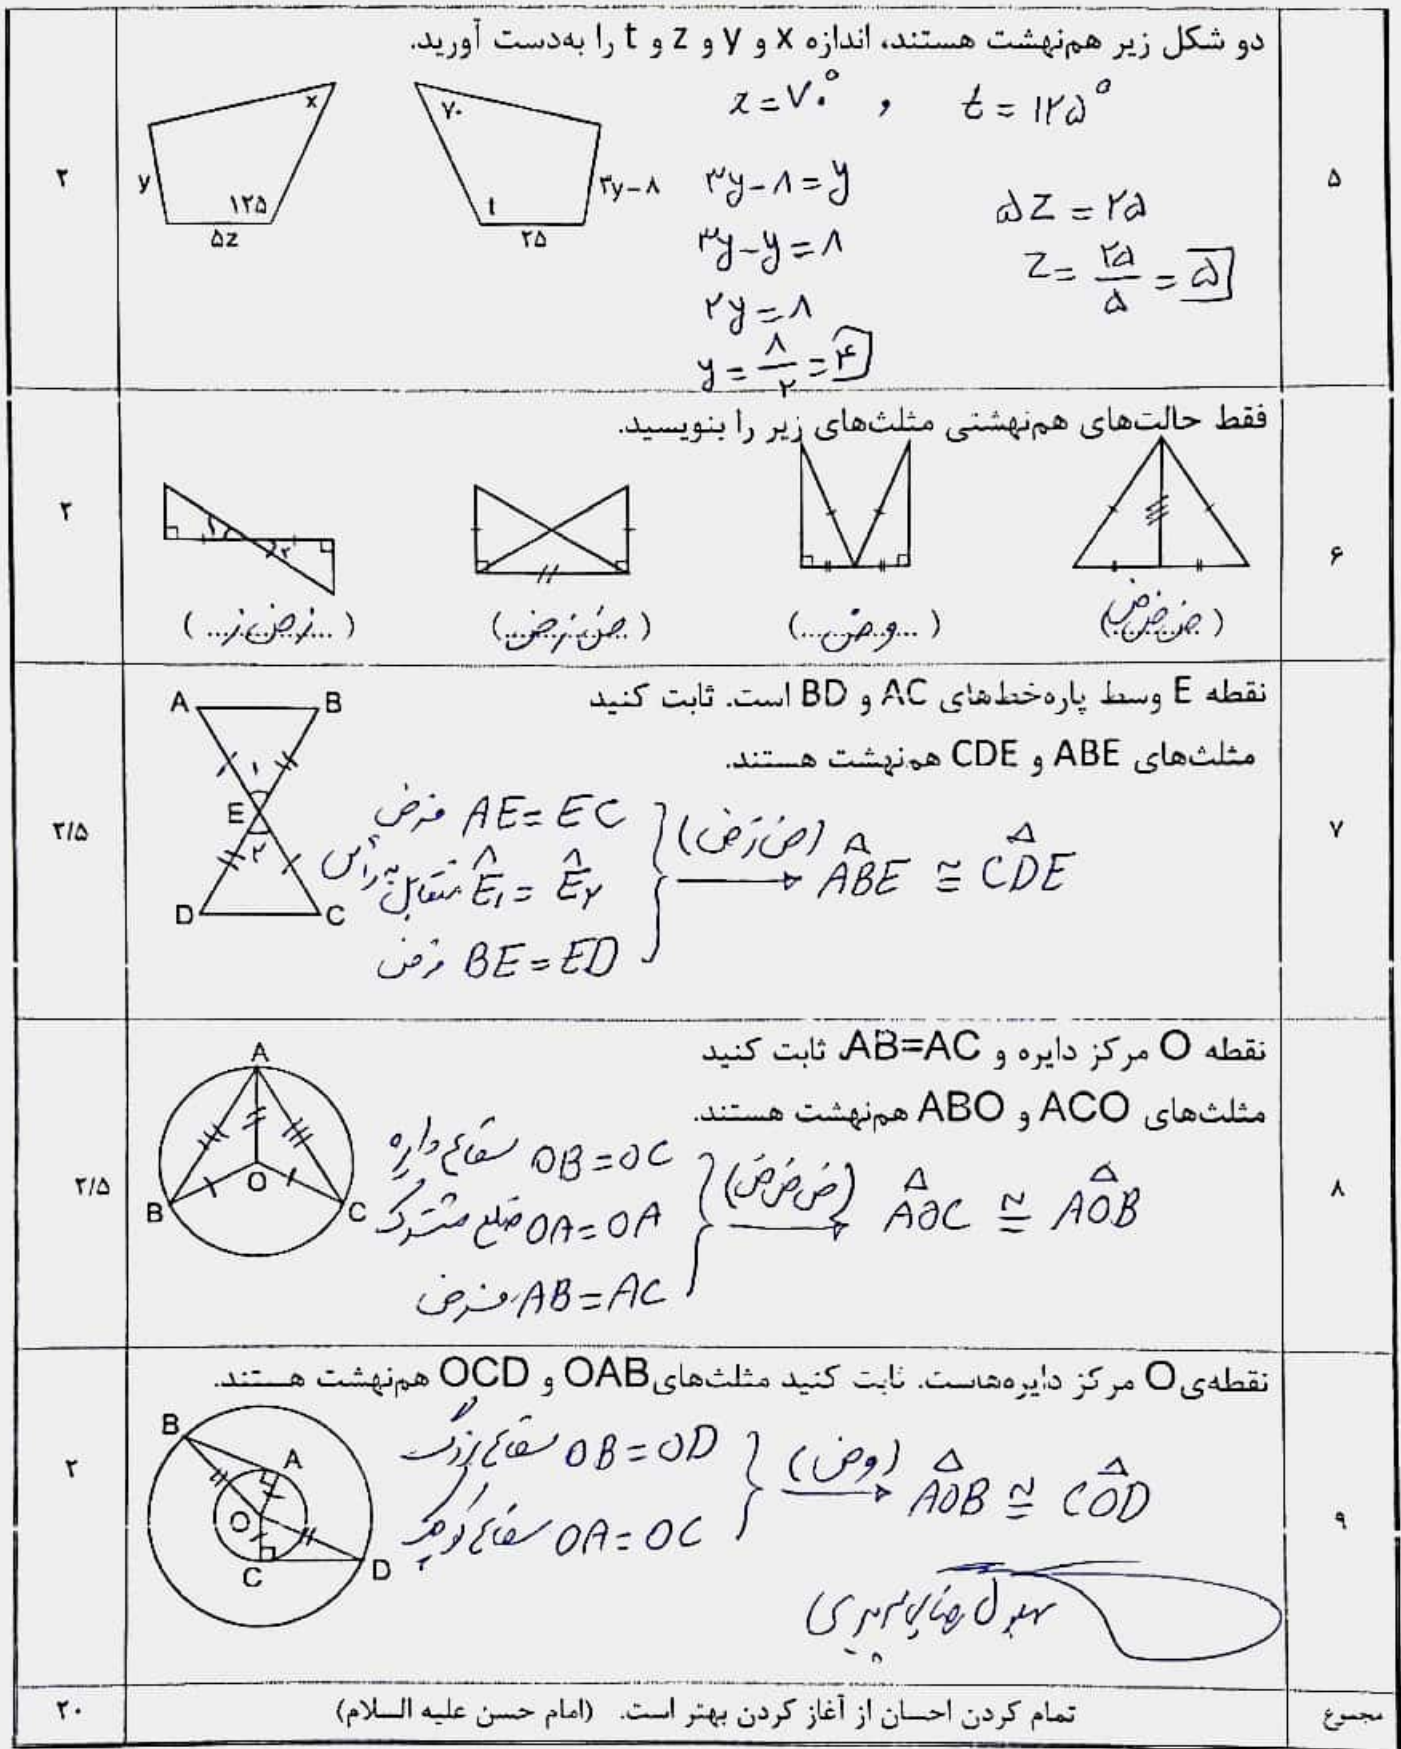 ۵
دو شکل زیر هم‌نهشت هستند، اندازه x و y و z و t را به‌دست آورید.
۲
x
y
۱۲۵
۵z
۷۰
t
۳y-۸
۲۵
x = ۷۰° , t = ۱۲۵°
۳y-۸ = y
۳y-y = ۸
۲y = ۸
y = ۸/۲ = ۴
۵z = ۲۵
z = ۲۵/۵ = ۵
۶
فقط حالت‌های هم‌نهشتی مثلث‌های زیر را بنویسید.
۲
(ض ض ض)
(...و ض...)
(ض ز ض)
(...ز ض ز...)
۷
نقطه E وسط پاره‌خط‌های AC و BD است. ثابت کنید
مثلث‌های ABE و CDE هم‌نهشت هستند.
۲/۵
A B
۱
E
۲
D C
فرض AE = EC
متقابل به رأس Ê۱ = Ê۲
فرض BE = ED
(ض ز ض)
ABE ≅ CDE
۸
نقطه O مرکز دایره و AB=AC، ثابت کنید
مثلث‌های ACO و ABO هم‌نهشت هستند.
۲/۵
A
O
B C
شعاع دایره OB = OC
ضلع مشترک OA = OA
فرض AB = AC
(ض ض ض)
AOC ≅ AOB
۹
نقطه‌ی O مرکز دایره‌هاست. ثابت کنید مثلث‌های OAB و OCD هم‌نهشت هستند.
۲
B
A
O
C D
شعاع بزرگ OB = OD
شعاع کوچک OA = OC
(و ض)
AOB ≅ COD
مجموع
تمام کردن احسان از آغاز کردن بهتر است. (امام حسن علیه السلام)
۲۰